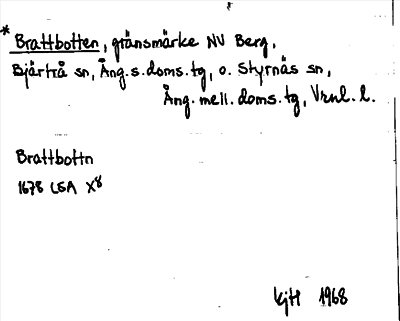 * Brattbotten, gränsmärke NV Berg,
Bjärtrå sn, Ång. s. doms. tg, o. Styrnäs sn,
Ång. mell. doms. tg, Vrnl. l.
Brattbottn
1678 LSA X8
KjH 1968